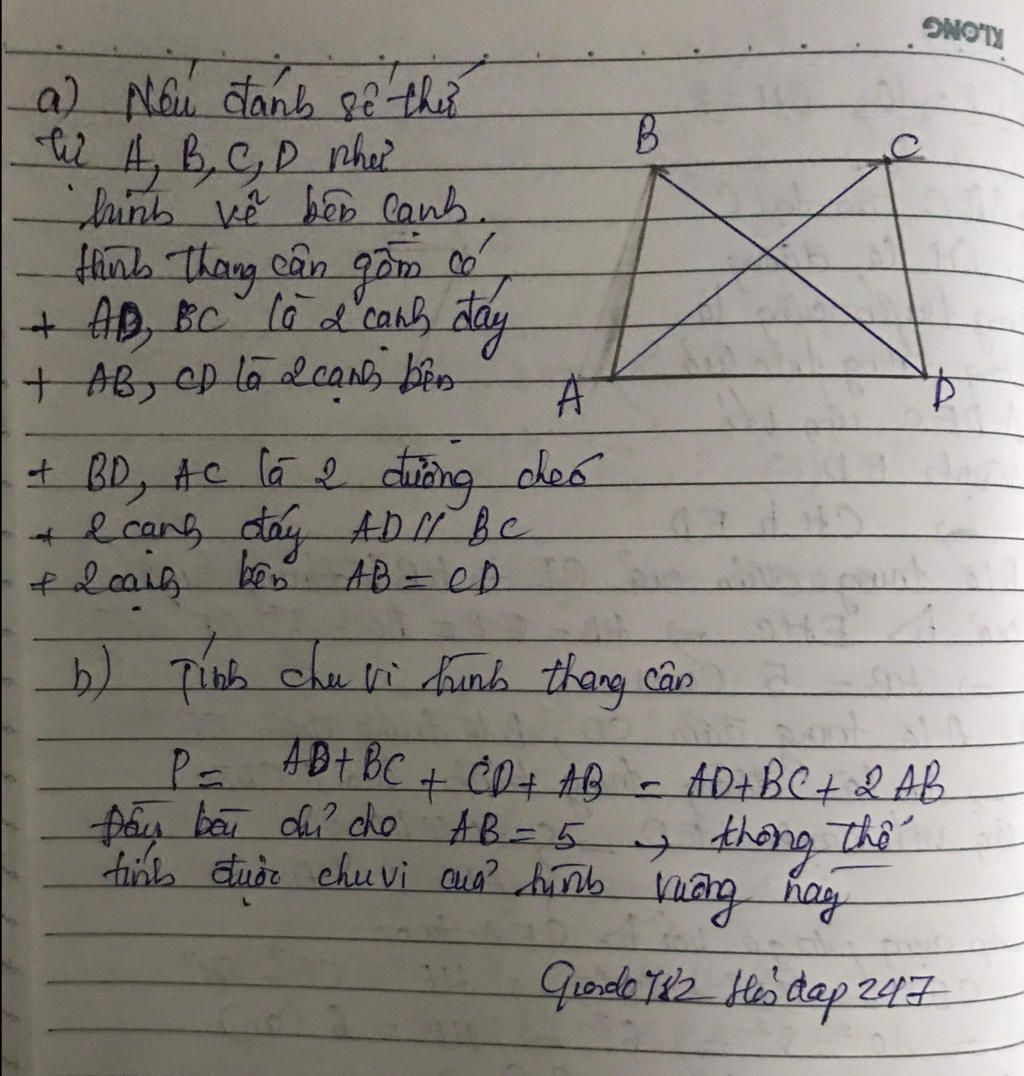 KLONG
a) Nếu đánh số thứ
tự A, B, C, D như
hình vẽ bên cạnh.
Hình thang cân gồm có
+ AD, BC là 2 cạnh đáy
+ AB, CD là 2 cạnh bên
B
C
A
D
+ BD, AC là 2 đường chéo
+ 2 cạnh đáy AD // BC
+ 2 cạnh bên AB = CD
b) Tính chu vi hình thang cân
P = AD + BC + CD + AB = AD + BC + 2 AB
Đầu bài chỉ cho AB = 5 → không thể
tính được chu vi của hình vuông này
782 Hỏi đáp 247